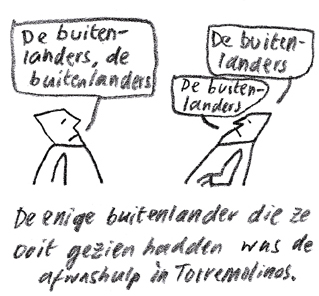 De buiten-
landers, de
buitenlanders
De buiten-
landers
De buiten-
landers
De enige buitenlander die ze
ooit gezien hadden was de
afwashulp in Torremolinos.